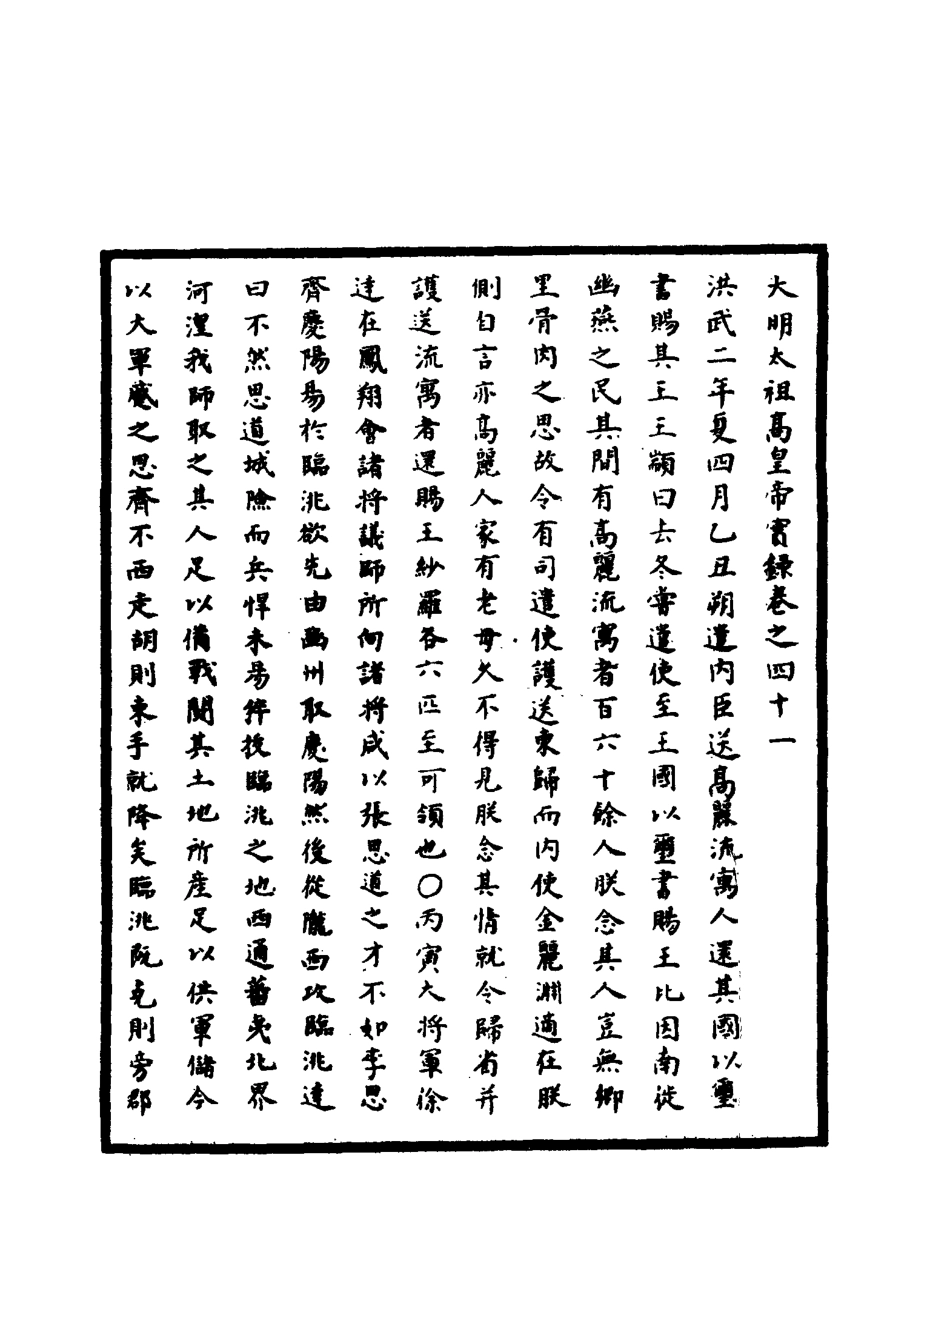 大明太祖高皇帝實錄卷之四十一
洪武二年夏四月乙丑朔遣內臣送高麗流寓人還其國以璽
書賜其王王顓曰去冬嘗遣使至王國以璽書賜王比因南徙
幽燕之民其間有高麗流寓者百六十餘人朕念其人豈無鄉
里骨肉之思故令有司遣使護送東歸而內使金麗淵適在朕
側自言亦高麗人家有老母久不得見朕念其情就令歸省并
護送流寓者還賜王紗羅各六匹至可領也〇丙寅大將軍徐
達在鳳翔會諸將議師所向諸將咸以張思道之才不如李思
齊慶陽易於臨洮欲先由豳州取慶陽然後從隴西攻臨洮達
曰不然思道城險而兵悍未易猝拔臨洮之地西通蕃夷北界
河湟我師取之其人足以備戰鬪其土地所產足以供軍儲今
以大軍蹙之思齊不西走胡則束手就降矣臨洮既克則旁郡